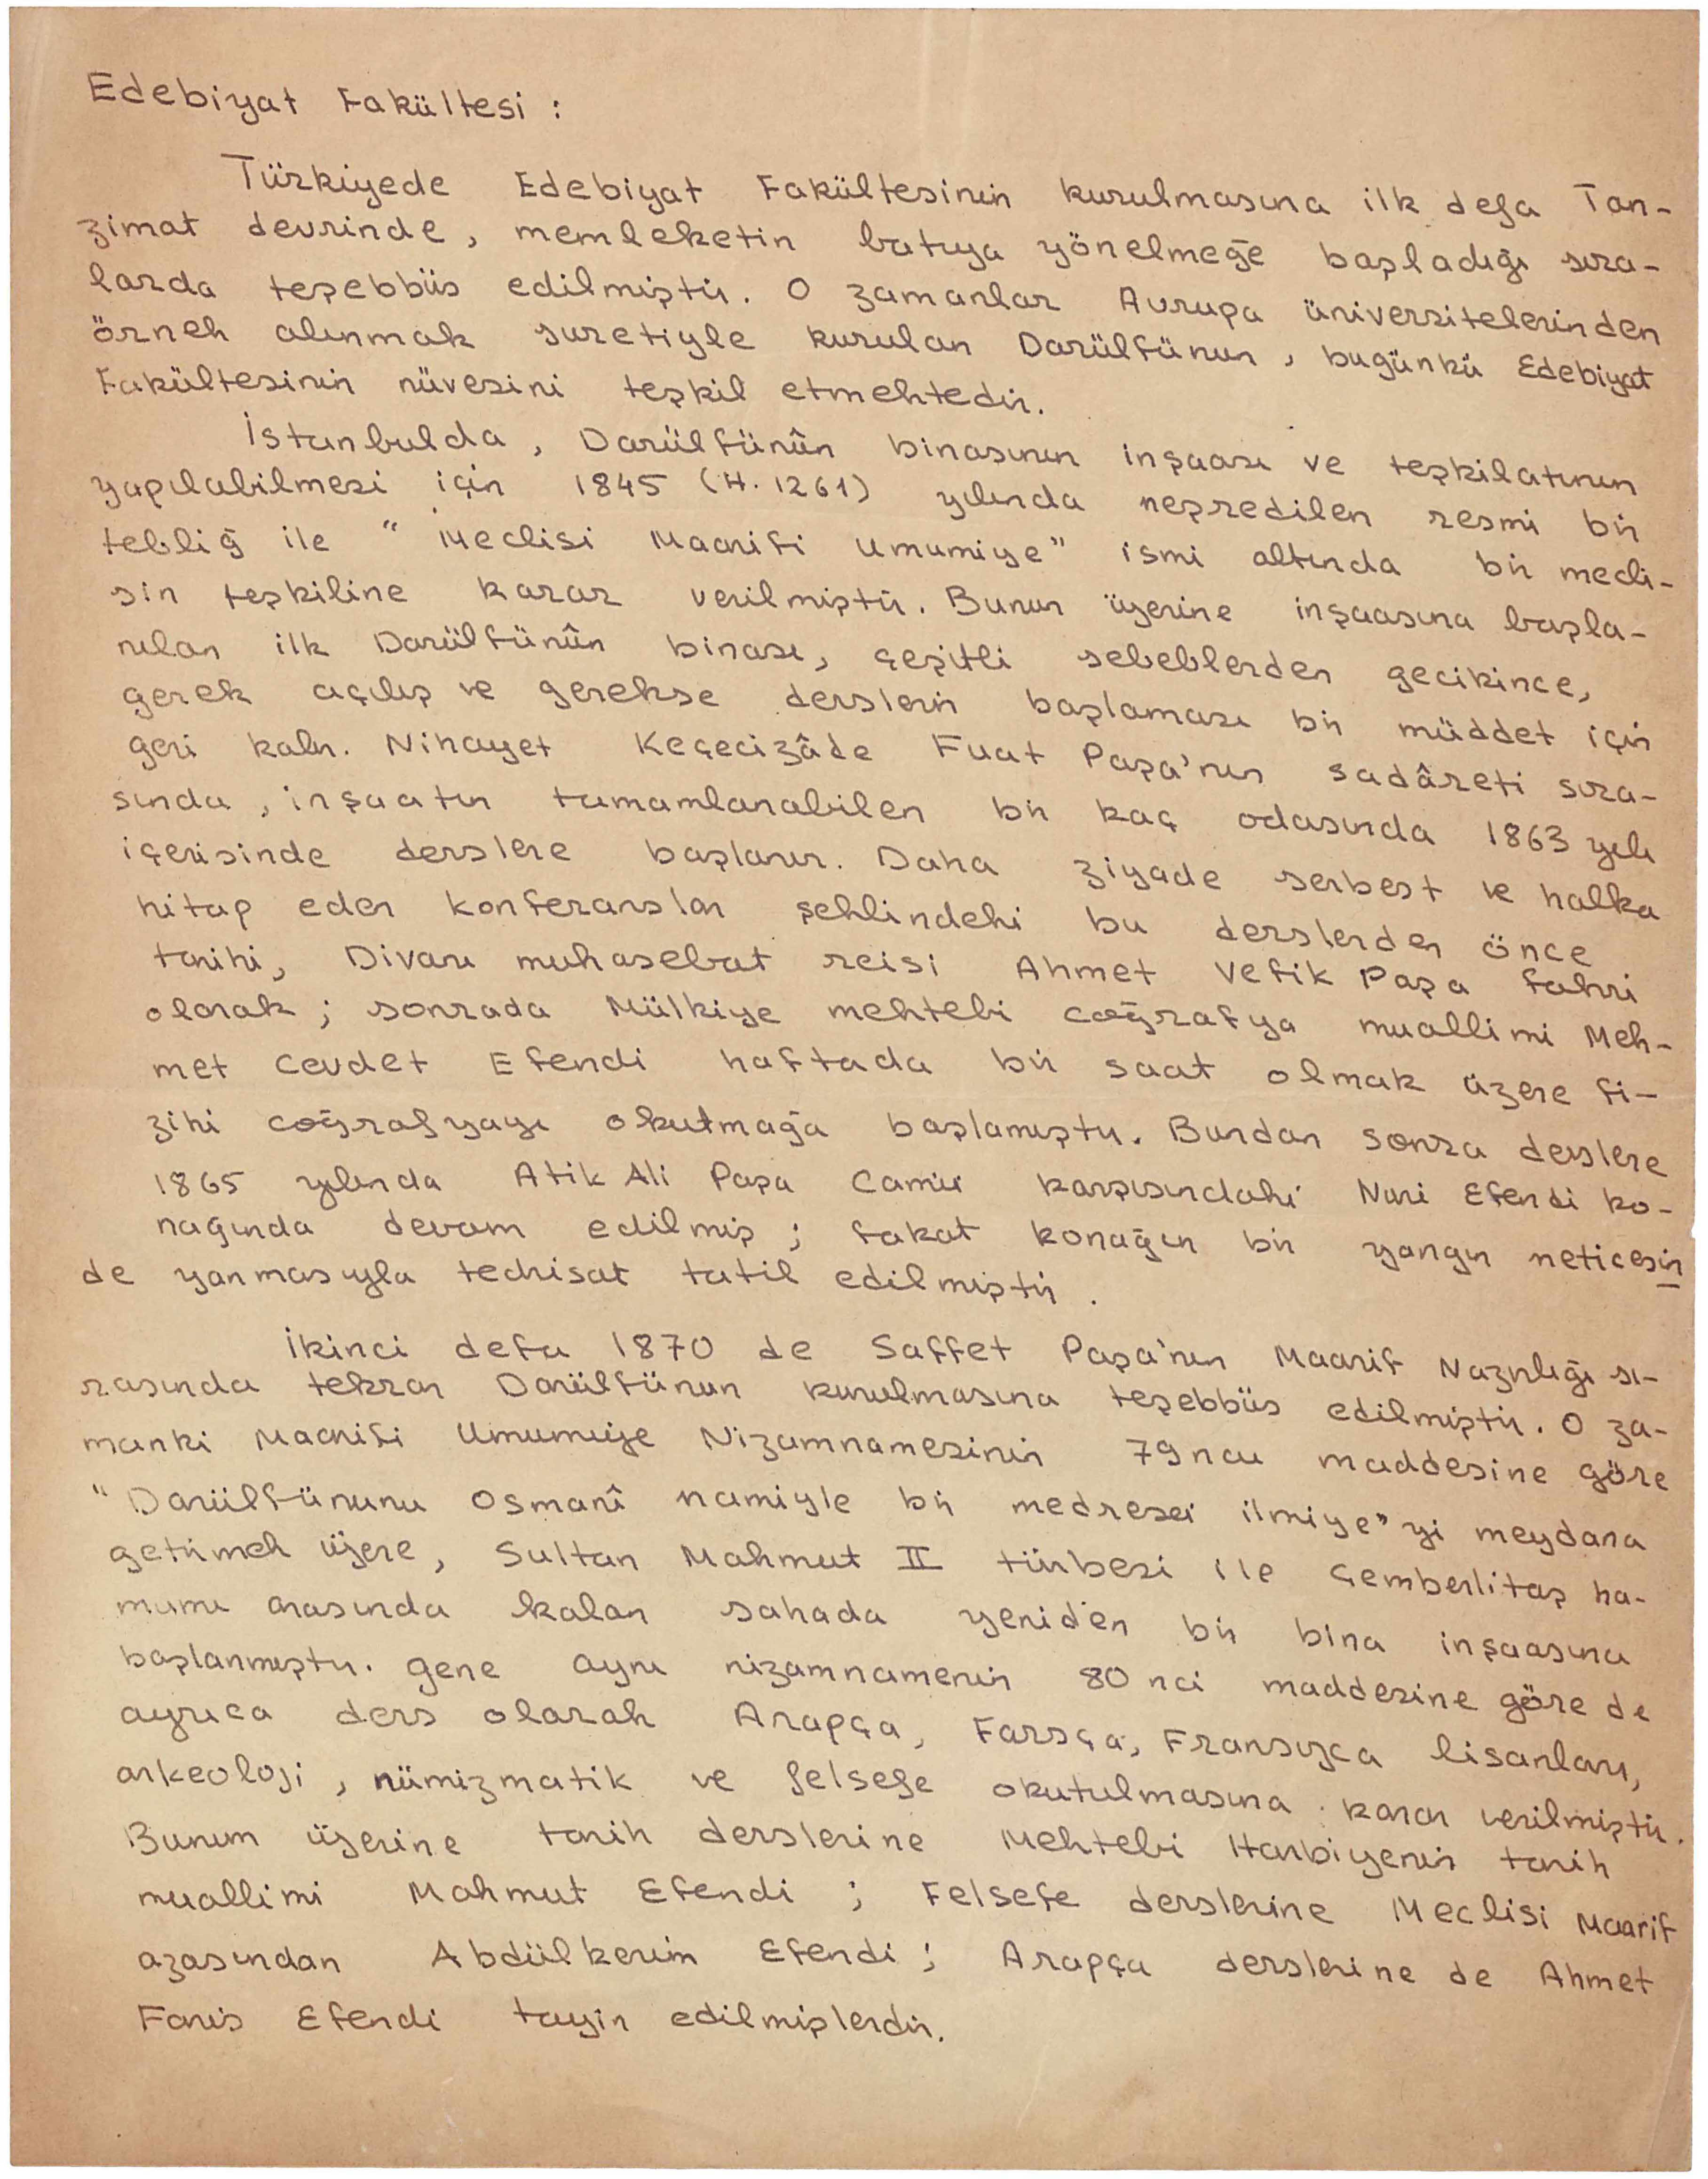 Edebiyat Fakültesi :
Türkiyede Edebiyat Fakültesinin kurulmasına ilk defa Tan-
zimat devrinde, memleketin batıya yönelmeğe başladığı sıra-
larda teşebbüs edilmiştir. O zamanlar Avrupa üniversitelerinden
örnek alınmak suretiyle kurulan Darülfünun, bugünkü Edebiyat
Fakültesinin nüvesini teşkil etmektedir.
İstanbulda, Darülfünûn binasının inşaası ve teşkilatının
yapılabilmesi için 1845 (H. 1261) yılında neşredilen resmi bir
tebliğ ile "Meclisi Maarifi Umumiye" ismi altında bir mecli-
sin teşkiline karar verilmiştir. Bunun üzerine inşaasına başla-
nılan ilk Darülfünûn binası, çeşitli sebeblerden gecikince,
gerek açılış ve gerekse derslerin başlaması bir müddet için
geri kalır. Nihayet Keçecizâde Fuat Paşa'nın sadâreti sıra-
sında, inşaatın tamamlanabilen bir kaç odasında 1863 yılı
içerisinde derslere başlanır. Daha ziyade serbest ve halka
hitap eden konferanslar şeklindeki bu derslerden önce
tarihi, Divanı muhasebat reisi Ahmet Vefik Paşa fahri
olarak; sonrada Mülkiye mektebi coğrafya muallimi Meh-
met Cevdet Efendi haftada bir saat olmak üzere fi-
ziki coğrafyayı okutmağa başlamıştır. Bundan sonra derslere
1865 yılında Atik Ali Paşa Camii karşısındaki Nuri Efendi ko-
nağında devam edilmiş; fakat konağın bir yangın neticesin
de yanmasıyla tedrisat tatil edilmiştir.
İkinci defa 1870 de Saffet Paşa'nın Maarif Nazırlığı sı-
rasında tekrar Darülfünun kurulmasına teşebbüs edilmiştir. O za-
manki Maarifi Umumiye Nizamnamesinin 79 ncu maddesine göre
"Darülfünunu Osmanî namiyle bir medresei ilmiye"yi meydana
getirmek üzere, Sultan Mahmut II türbesi ile Çemberlitaş ha-
mamı arasında kalan sahada yeniden bir bina inşaasına
başlanmıştır. Gene aynı nizamnamenin 80 nci maddesine göre de
ayrıca ders olarak Arapça, Farsça, Fransızca lisanları,
arkeoloji, nümizmatik ve felsefe okutulmasına karar verilmiştir.
Bunun üzerine tarih derslerine Mektebi Harbiyenin tarih
muallimi Mahmut Efendi; Felsefe derslerine Meclisi Maarif
azasından Abdülkerim Efendi; Arapça derslerine de Ahmet
Faris Efendi tayin edilmişlerdir.